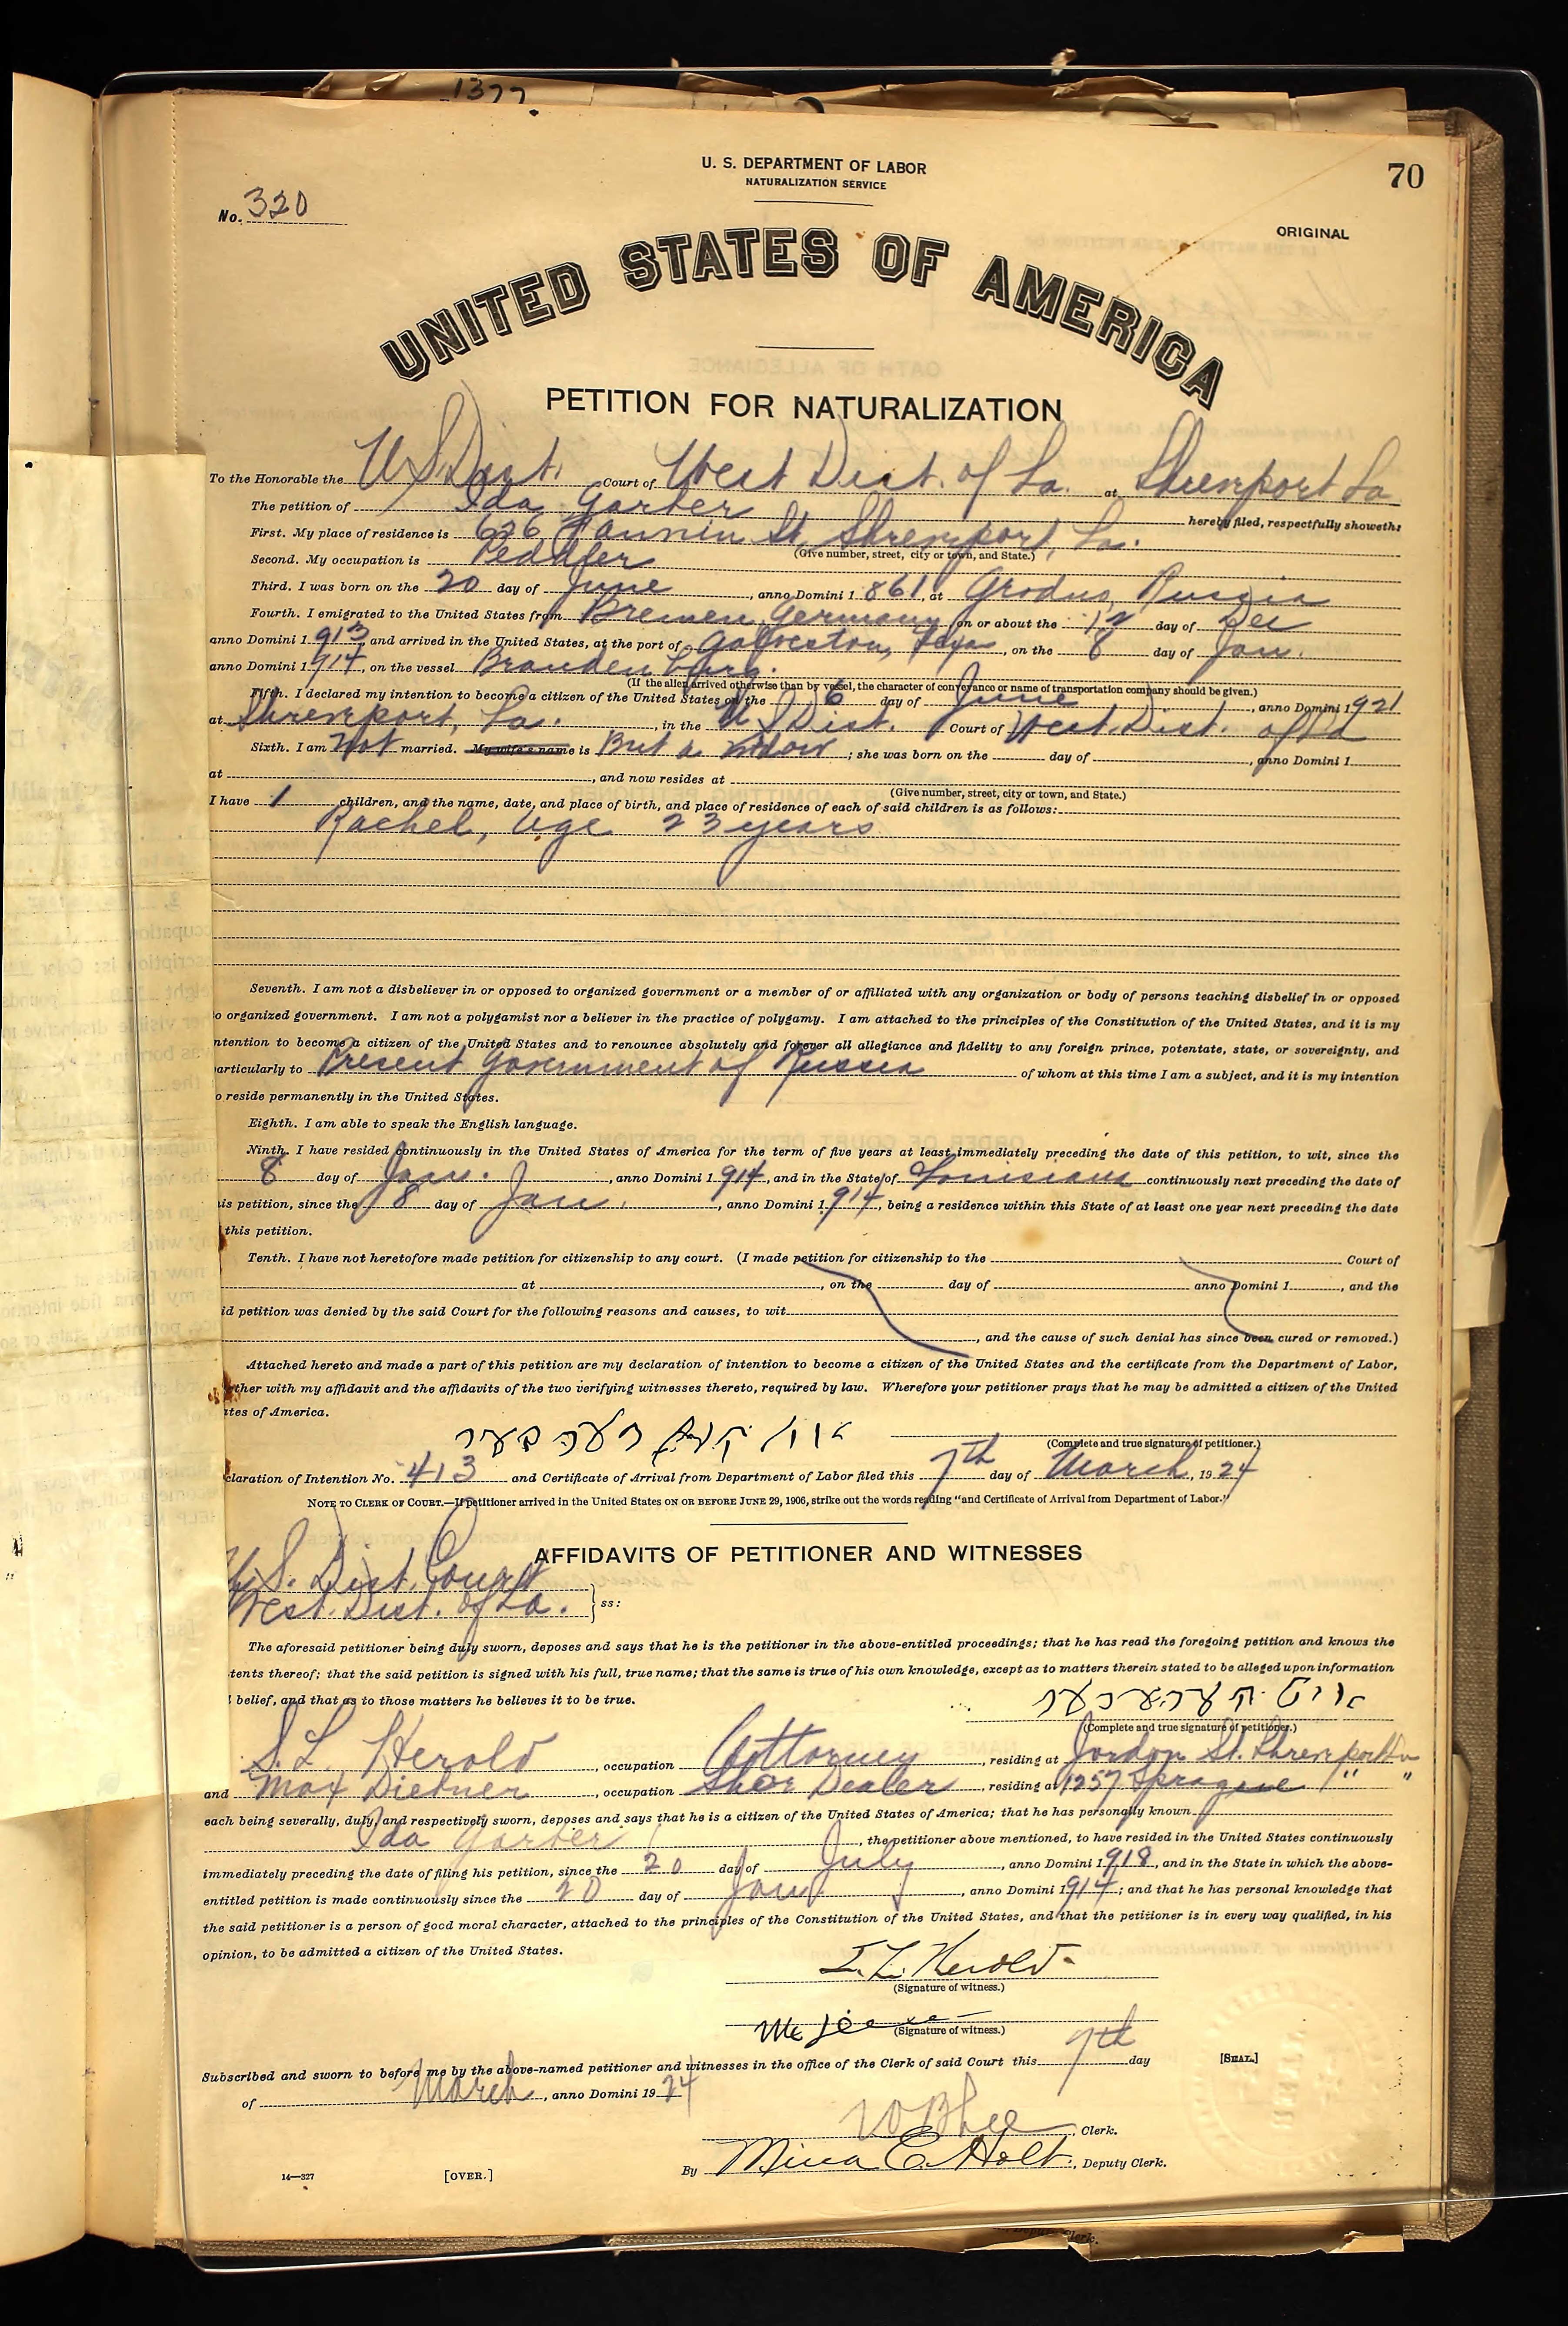 1377
U. S. DEPARTMENT OF LABOR
NATURALIZATION SERVICE
70
No. 320
ORIGINAL
UNITED STATES OF AMERICA
PETITION FOR NATURALIZATION
To the Honorable the U S Dist. Court of West Dist. of La. at Shreveport La
The petition of Ida Garber hereby filed, respectfully showeth:
First. My place of residence is 626 Fannin St, Shreveport, La.
(Give number, street, city or town, and State.)
Second. My occupation is Peddler
Third. I was born on the 20 day of June, anno Domini 1 861, at Grodno, Russia
Fourth. I emigrated to the United States from Bremen, Germany on or about the 12 day of Dec
anno Domini 1 913 and arrived in the United States, at the port of Galveston, Texas, on the 8 day of Jan.
anno Domini 1 914, on the vessel Brandenburg.
(If the alien arrived otherwise than by vessel, the character of conveyance or name of transportation company should be given.)
Fifth. I declared my intention to become a citizen of the United States on the 6 day of June, anno Domini 1921
at Shreveport, La., in the U. S Dist. Court of West. Dist. of La
Sixth. I am not married. My wife's name is But a widow; she was born on the day of , anno Domini 1
at , and now resides at
(Give number, street, city or town, and State.)
I have 1 children, and the name, date, and place of birth, and place of residence of each of said children is as follows:
Rachel, age 23 years
Seventh. I am not a disbeliever in or opposed to organized government or a member of or affiliated with any organization or body of persons teaching disbelief in or opposed
o organized government. I am not a polygamist nor a believer in the practice of polygamy. I am attached to the principles of the Constitution of the United States, and it is my
ntention to become a citizen of the United States and to renounce absolutely and forever all allegiance and fidelity to any foreign prince, potentate, state, or sovereignty, and
articularly to Present Government of Russia of whom at this time I am a subject, and it is my intention
o reside permanently in the United States.
Eighth. I am able to speak the English language.
Ninth. I have resided continuously in the United States of America for the term of five years at least immediately preceding the date of this petition, to wit, since the
8 day of Jan., anno Domini 1 914, and in the State of Louisiana continuously next preceding the date of
is petition, since the 8 day of Jan., anno Domini 1 914, being a residence within this State of at least one year next preceding the date
this petition.
Tenth. I have not heretofore made petition for citizenship to any court. (I made petition for citizenship to the Court of
at , on the day of anno Domini 1 , and the
id petition was denied by the said Court for the following reasons and causes, to wit
, and the cause of such denial has since been cured or removed.)
Attached hereto and made a part of this petition are my declaration of intention to become a citizen of the United States and the certificate from the Department of Labor,
ther with my affidavit and the affidavits of the two verifying witnesses thereto, required by law. Wherefore your petitioner prays that he may be admitted a citizen of the United
tes of America.
(Complete and true signature of petitioner.)
claration of Intention No. 413 and Certificate of Arrival from Department of Labor filed this 7th day of March, 1924
NOTE TO CLERK OF COURT.—If petitioner arrived in the United States ON OR BEFORE JUNE 29, 1906, strike out the words reading "and Certificate of Arrival from Department of Labor."
AFFIDAVITS OF PETITIONER AND WITNESSES
U. S. Dist. Court
West. Dist. of La. } ss:
The aforesaid petitioner being duly sworn, deposes and says that he is the petitioner in the above-entitled proceedings; that he has read the foregoing petition and knows the
tents thereof; that the said petition is signed with his full, true name; that the same is true of his own knowledge, except as to matters therein stated to be alleged upon information
belief, and that as to those matters he believes it to be true.
(Complete and true signature of petitioner.)
S. L. Herold, occupation Attorney, residing at Jordon St. Shreveport La
and Max Dietner, occupation Shoe Dealer, residing at 1257 Sprague " "
each being severally, duly, and respectively sworn, deposes and says that he is a citizen of the United States of America; that he has personally known
Ida Garber, the petitioner above mentioned, to have resided in the United States continuously
immediately preceding the date of filing his petition, since the 20 day of July, anno Domini 1918, and in the State in which the above-
entitled petition is made continuously since the 20 day of Jan, anno Domini 1914; and that he has personal knowledge that
the said petitioner is a person of good moral character, attached to the principles of the Constitution of the United States, and that the petitioner is in every way qualified, in his
opinion, to be admitted a citizen of the United States.
S. L. Herold
(Signature of witness.)
(Signature of witness.)
Subscribed and sworn to before me by the above-named petitioner and witnesses in the office of the Clerk of said Court this 7th day [SEAL.]
of March, anno Domini 19 24
W B Lee, Clerk.
By Mina E. Holt, Deputy Clerk.
14—327
[OVER.]